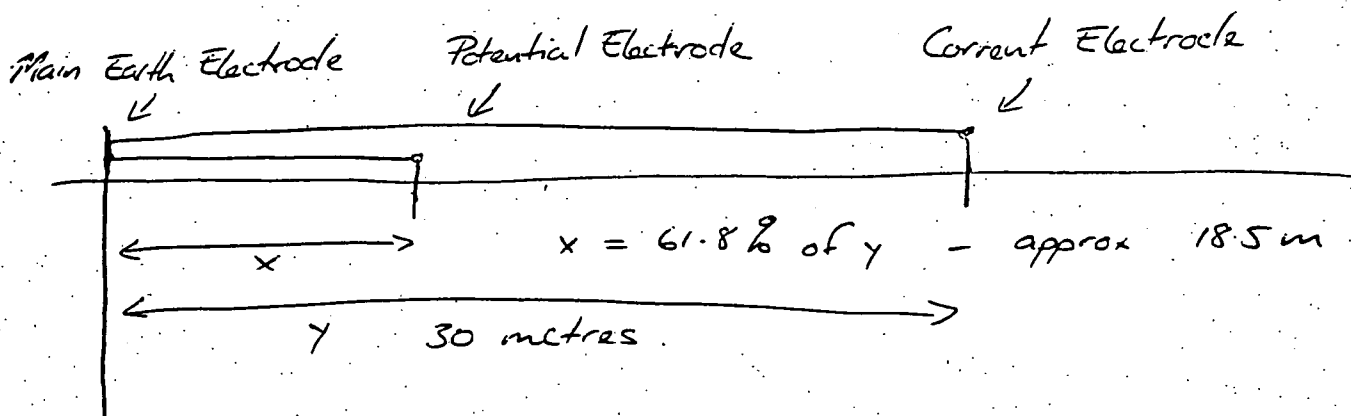 Main Earth Electrode
Potential Electrode
Current Electrode
x
x = 61.8% of y - approx 18.5m
y 30 metres.